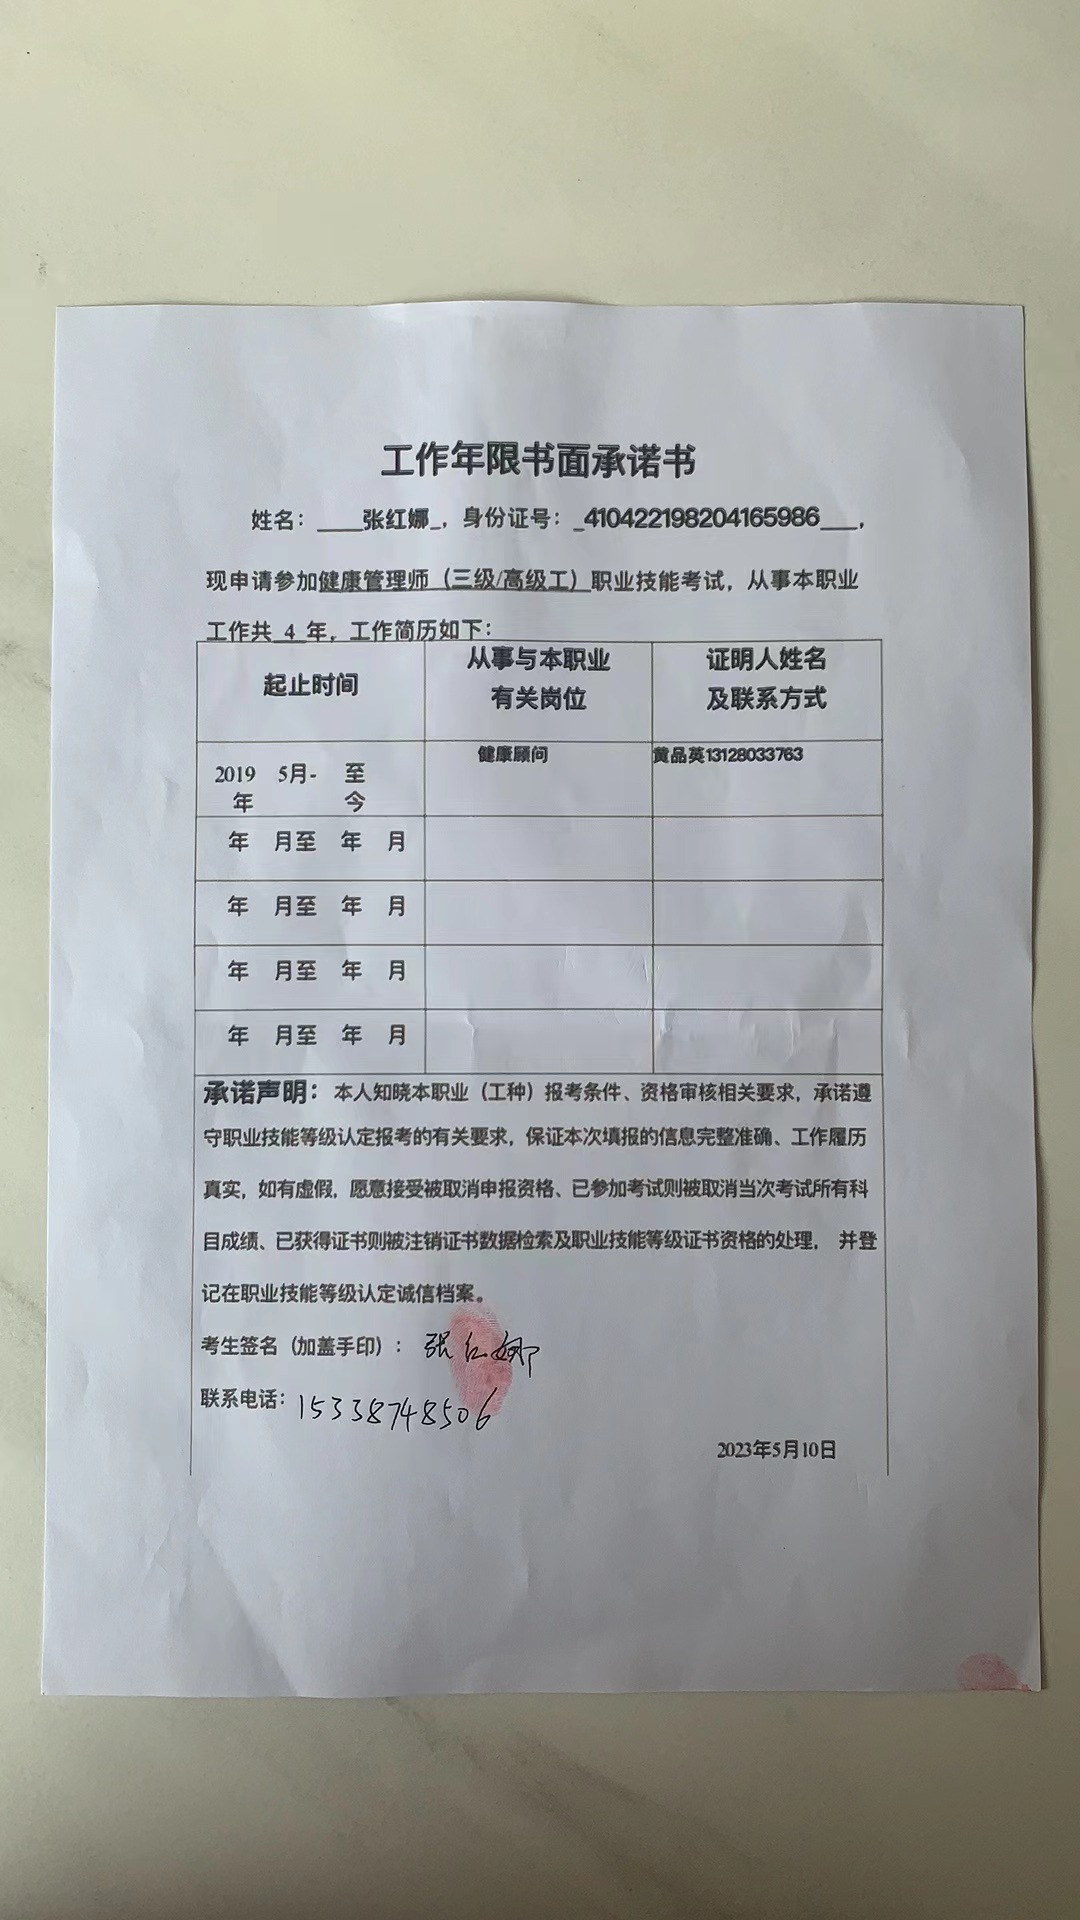 工作年限书面承诺书
姓名：____张红娜_，身份证号：_410422198204165986___，
现申请参加健康管理师（三级/高级工）职业技能考试，从事本职业
工作共_4_年，工作简历如下：
起止时间
从事与本职业
有关岗位
证明人姓名
及联系方式
2019 5月- 至
年 今
健康顾问
黄品英13128033763
年 月至 年 月
年 月至 年 月
年 月至 年 月
年 月至 年 月
承诺声明：本人知晓本职业（工种）报考条件、资格审核相关要求，承诺遵
守职业技能等级认定报考的有关要求，保证本次填报的信息完整准确、工作履历
真实，如有虚假，愿意接受被取消申报资格、已参加考试则被取消当次考试所有科
目成绩、已获得证书则被注销证书数据检索及职业技能等级证书资格的处理， 并登
记在职业技能等级认定诚信档案。
考生签名（加盖手印）：张红娜
联系电话：15338748506
2023年5月10日